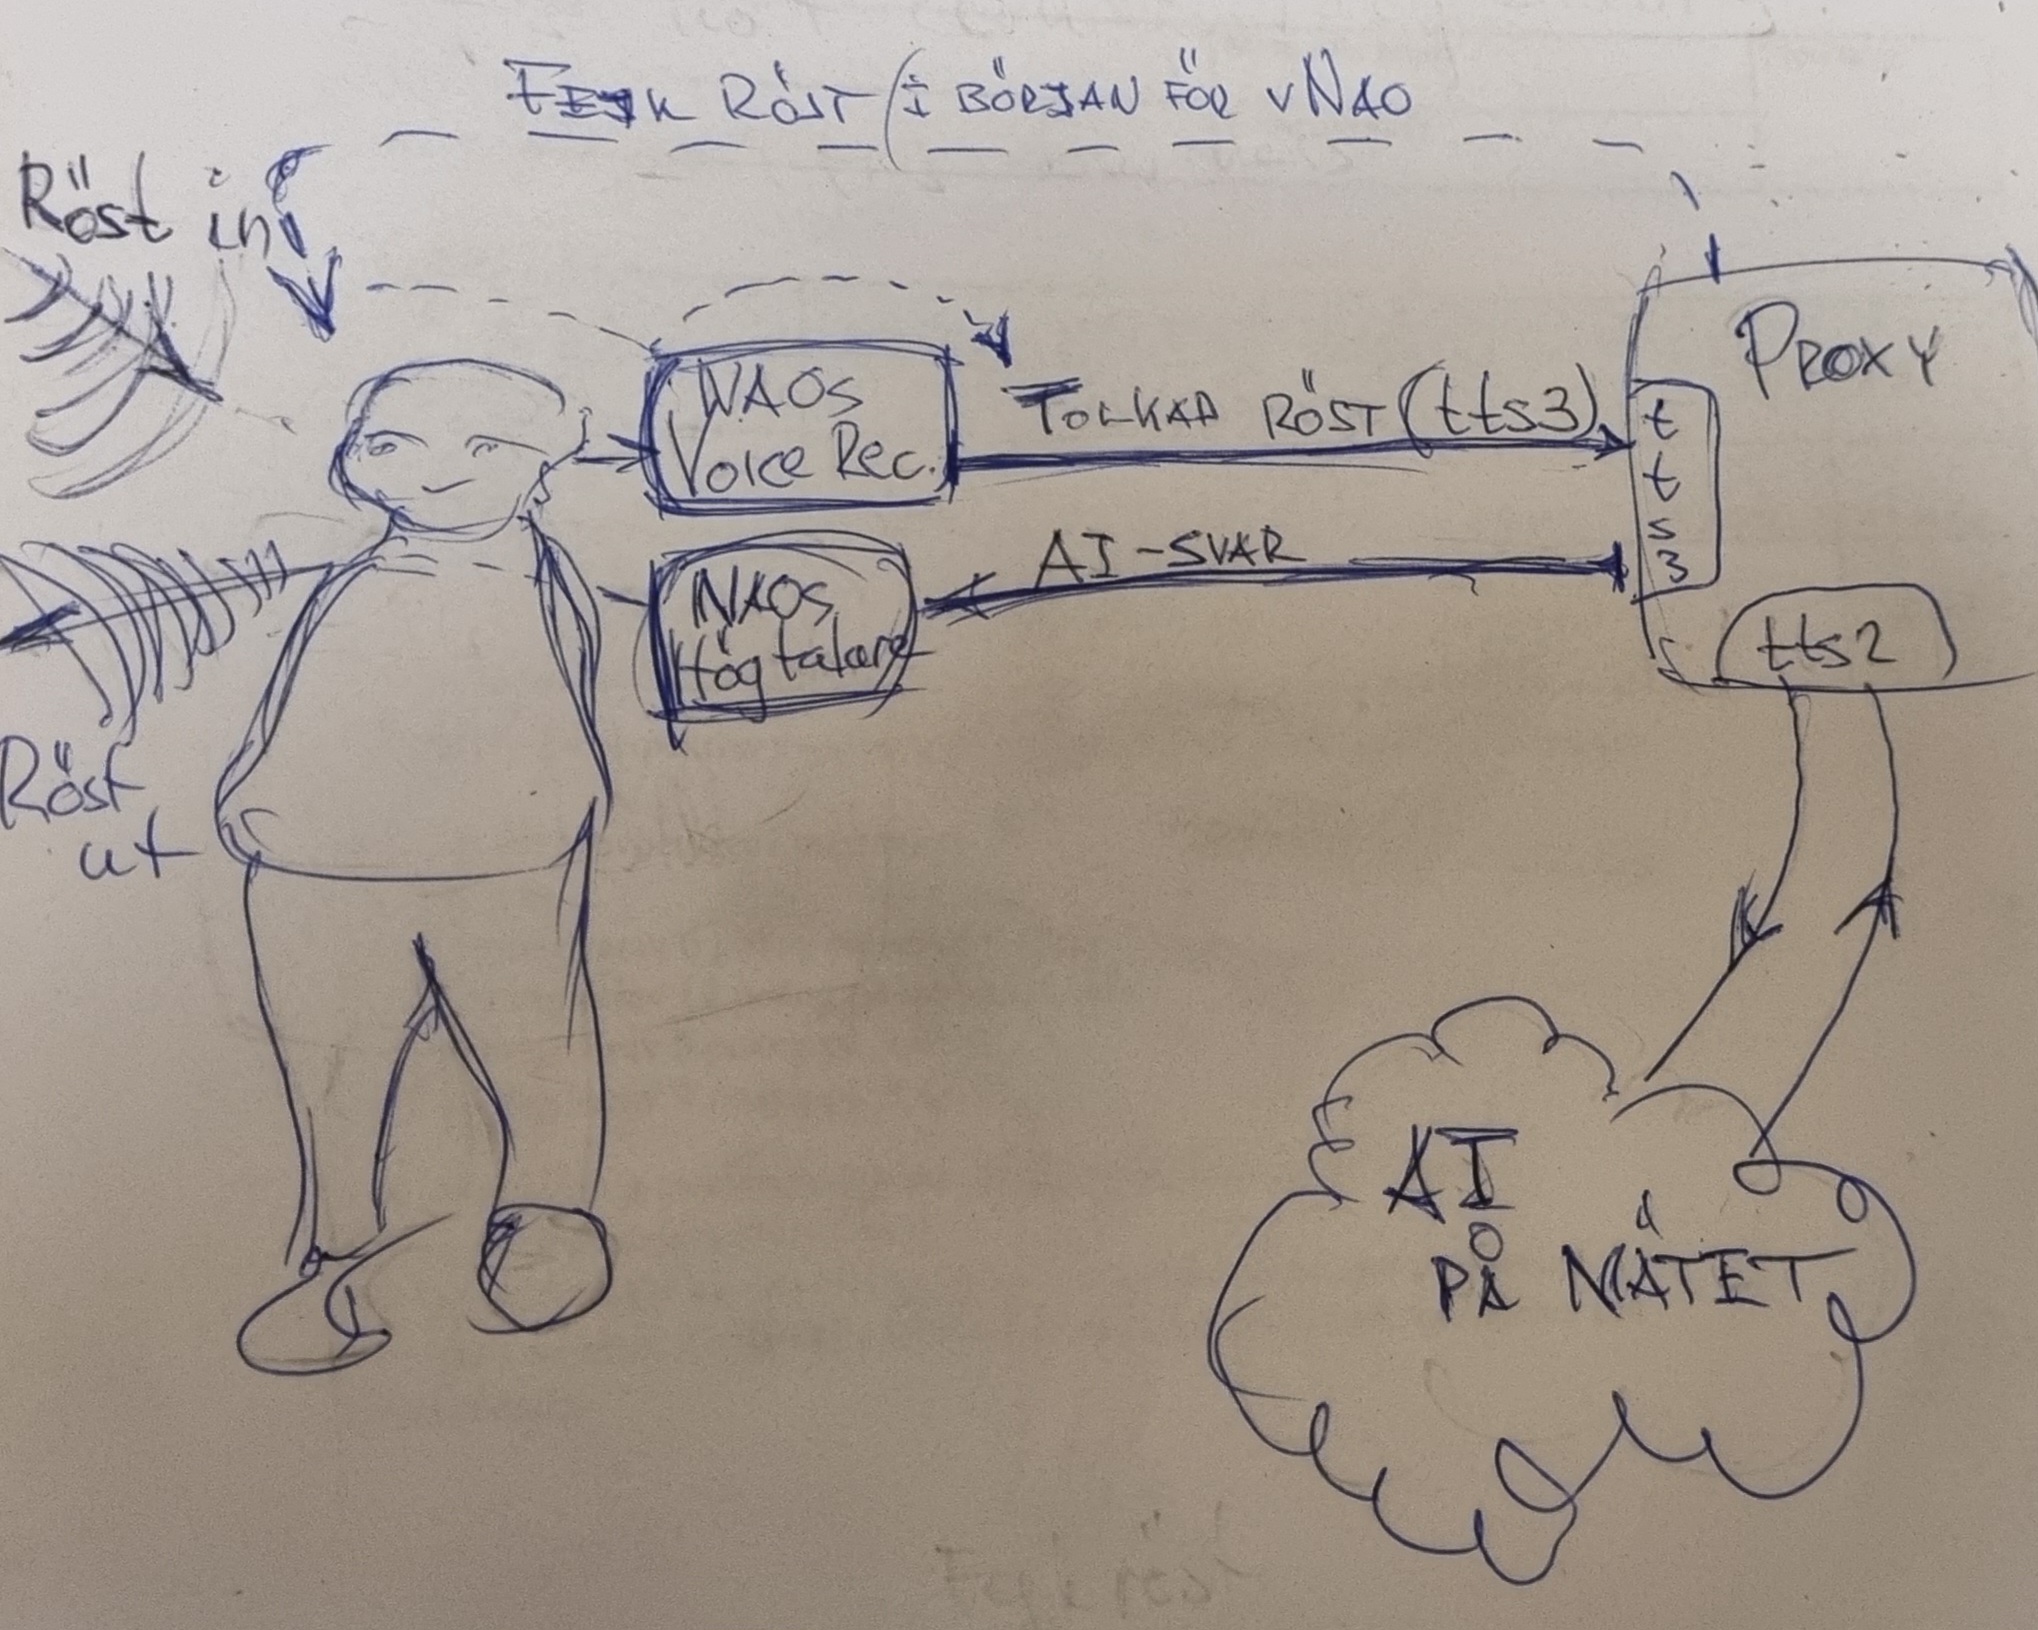 FEJK RÖST (I BÖRJAN FÖR vNAO
Röst in
PROXY
NAOs
Voice Rec.
TOLKAD RÖST (tts3)
t
t
s
3
AI-SVAR
NAOs
Högtalare
tts2
Röst
ut
AI
PÅ NÄTET